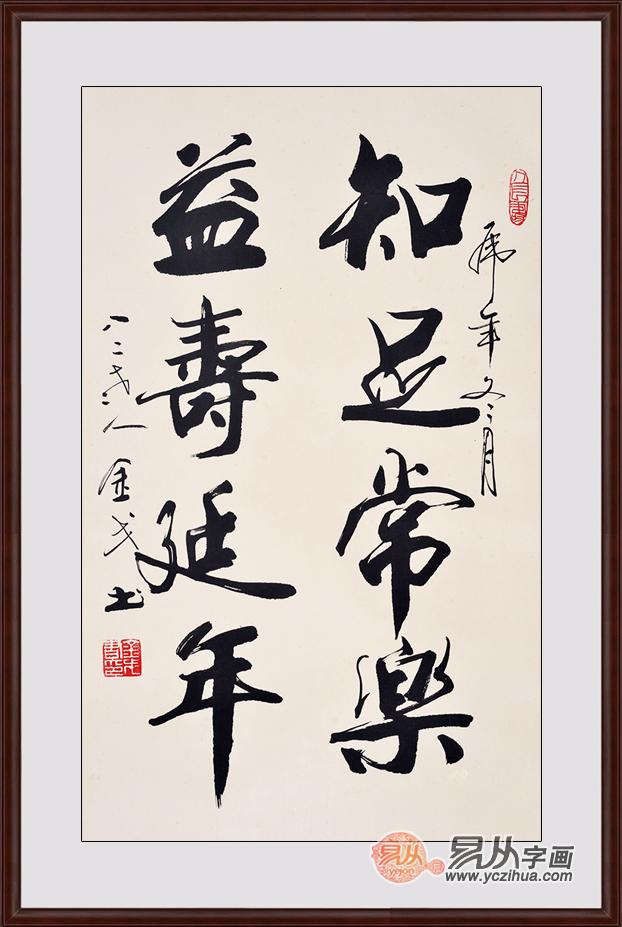 虎年冬月
知足常樂
益壽延年
八二老人金戈书
易从
易从字画
www.yczihua.com